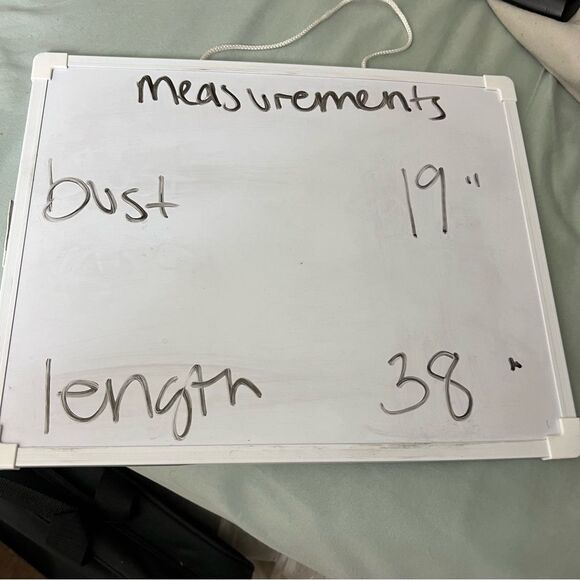 measurements
bust 19"
length 38"